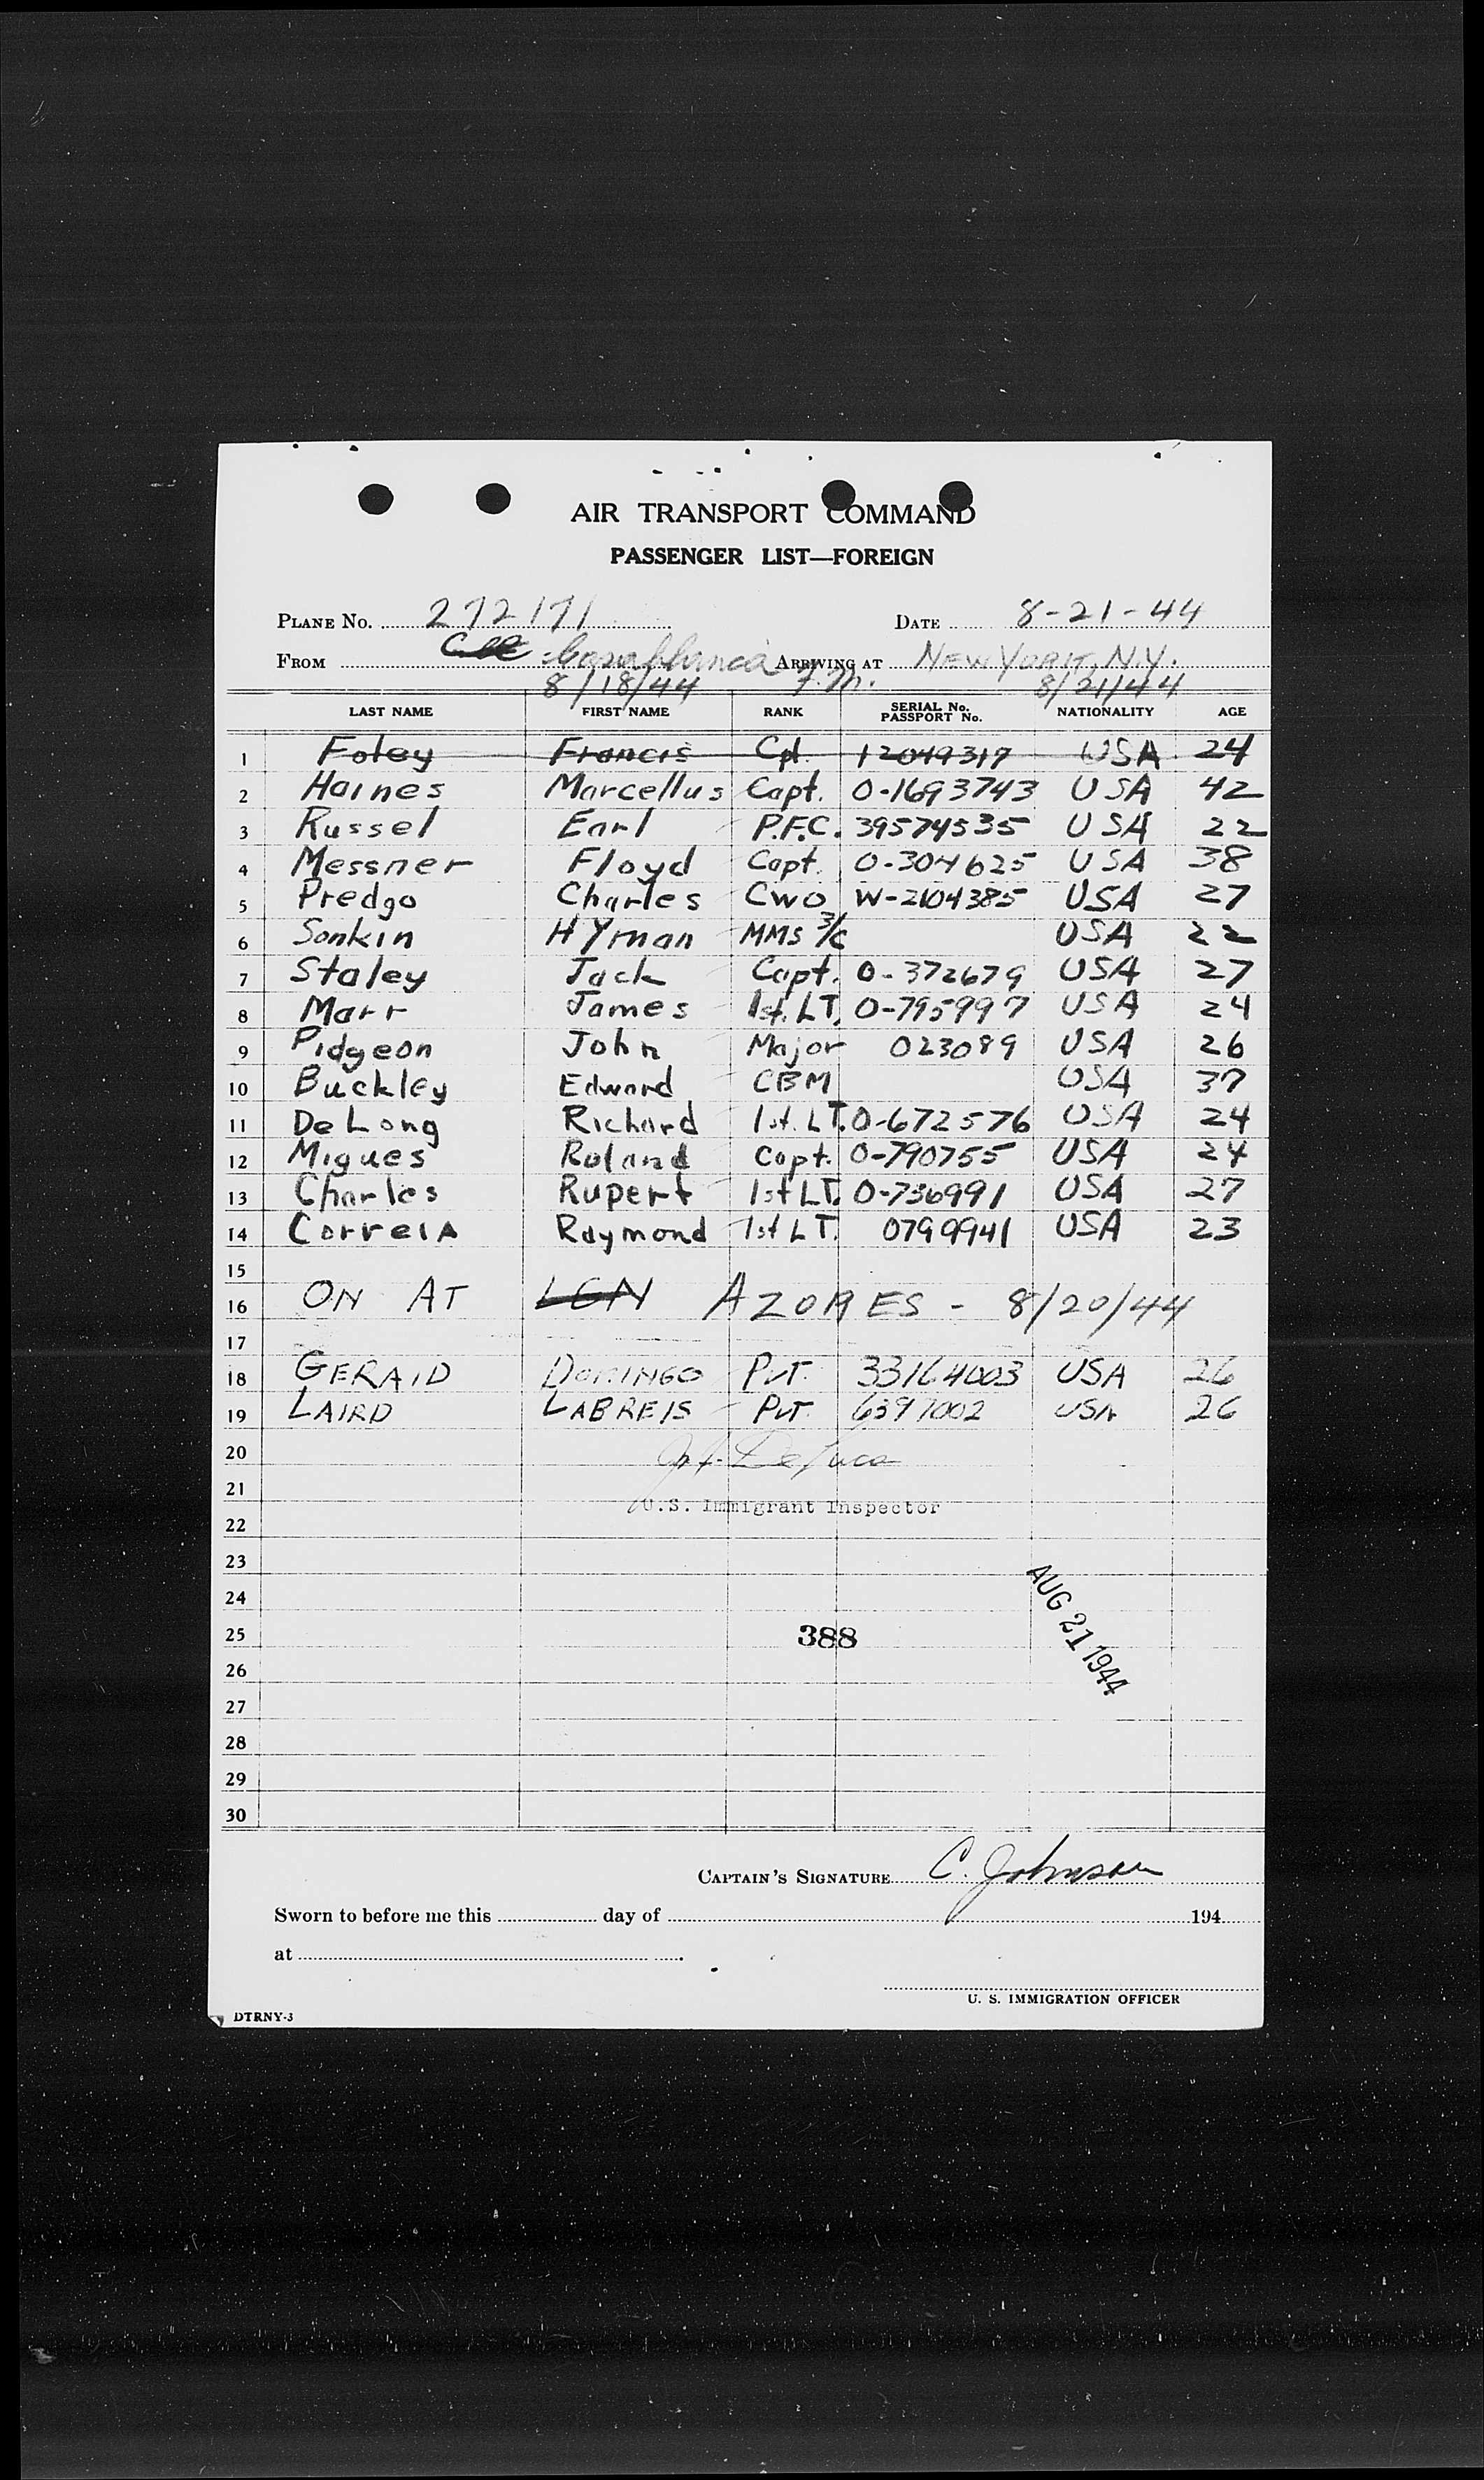 AIR TRANSPORT COMMAND
PASSENGER LIST—FOREIGN
PLANE No. 272171 DATE 8-21-44
FROM Casablanca F.M. ARRIVING AT NEW YORK, N.Y.
8/18/44 8/21/44
LAST NAME FIRST NAME RANK SERIAL No. PASSPORT No. NATIONALITY AGE
1 Foley Francis Cpl. 12049317 USA 24
2 Haines Marcellus Capt. O-1693743 USA 42
3 Russel Earl P.F.C. 39574535 USA 22
4 Messner Floyd Capt. O-304625 USA 38
5 Predgo Charles CWO W-2104385 USA 27
6 Sonkin HYman MMS 3/c USA 22
7 Staley Jack Capt. O-372679 USA 27
8 Marr James 1st. LT. O-795997 USA 24
9 Pidgeon John Major 023089 USA 26
10 Buckley Edward CBM USA 37
11 DeLong Richard 1st. LT. O-672576 USA 24
12 Migues Roland Capt. O-790755 USA 24
13 Charles Rupert 1st LT. O-736991 USA 27
14 Correia Raymond 1st LT. 0799941 USA 23
15
16 ON AT LGN AZORES - 8/20/44
17
18 GERALD DOMINGO PVT. 33164003 USA 26
19 LAIRD LABREIS PVT. 6397002 USA 26
20 DeLuca
21
U.S. Immigrant Inspector
22
23
24
AUG 21 1944
25 388
26
27
28
29
30
CAPTAIN'S SIGNATURE C. Johnson
Sworn to before me this day of 194
at
U. S. IMMIGRATION OFFICER
DTRNY-3